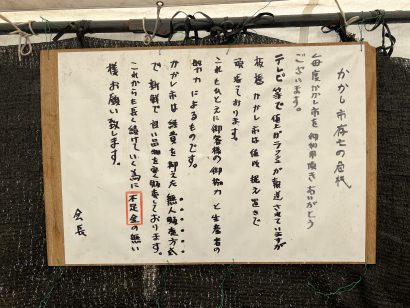 かかし市存亡の危機
毎度かかし市を御利用頂きありがとう
ございます。
テレビ等で値上がラッシュが報道されていますが
かかし市は価格据え置きで
頑張っております。
これもひとえに御客様の御協力と生産者の
努力によるものです。
かかし市は経費を抑えた無人販売方式
で新鮮で良い品物を販売しております。
これからも長く続けていく為に不足金の無い
様お願い致します。
会長